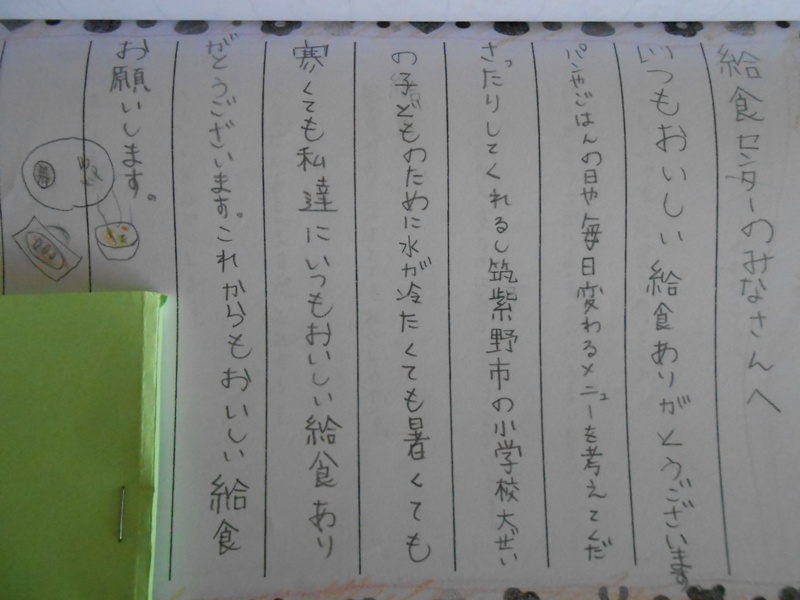 給食センターのみなさんへ
いつもおいしい給食ありがとうございます
パンやごはんの日や毎日変わるメニューを考えてくだ
さったりしてくれるし筑紫野市の小学校大ぜい
の子どものために水が冷たくても暑くても
寒くても私達にいつもおいしい給食あり
がとうございます。これからもおいしい給食
お願いします。